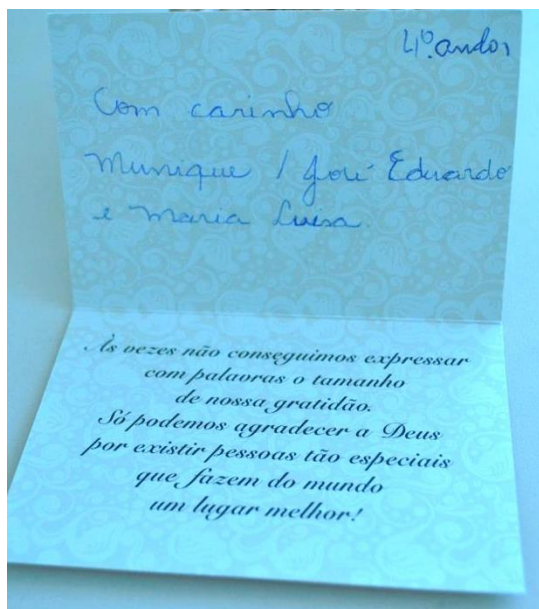 4º. andar
Com carinho
Munique / José Eduardo
e Maria Luisa.
Às vezes não conseguimos expressar
com palavras o tamanho
de nossa gratidão.
Só podemos agradecer a Deus
por existir pessoas tão especiais
que fazem do mundo
um lugar melhor!